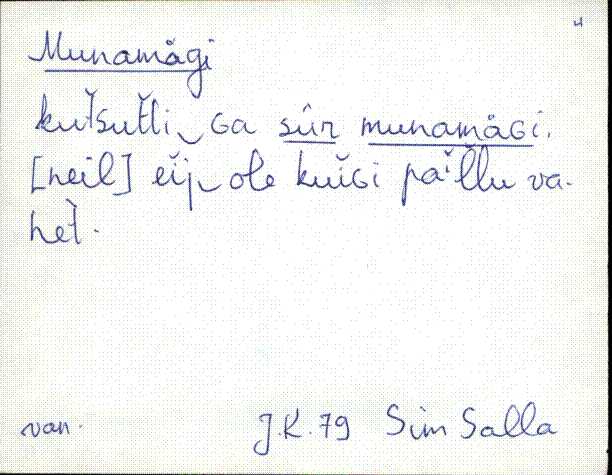 4
Munamägi
kutsutli‿ɢa sûr munamäɢi.
[neil] eij‿ole kuiɢi pallu va-
het.
van. J.K. 79 Sim Salla